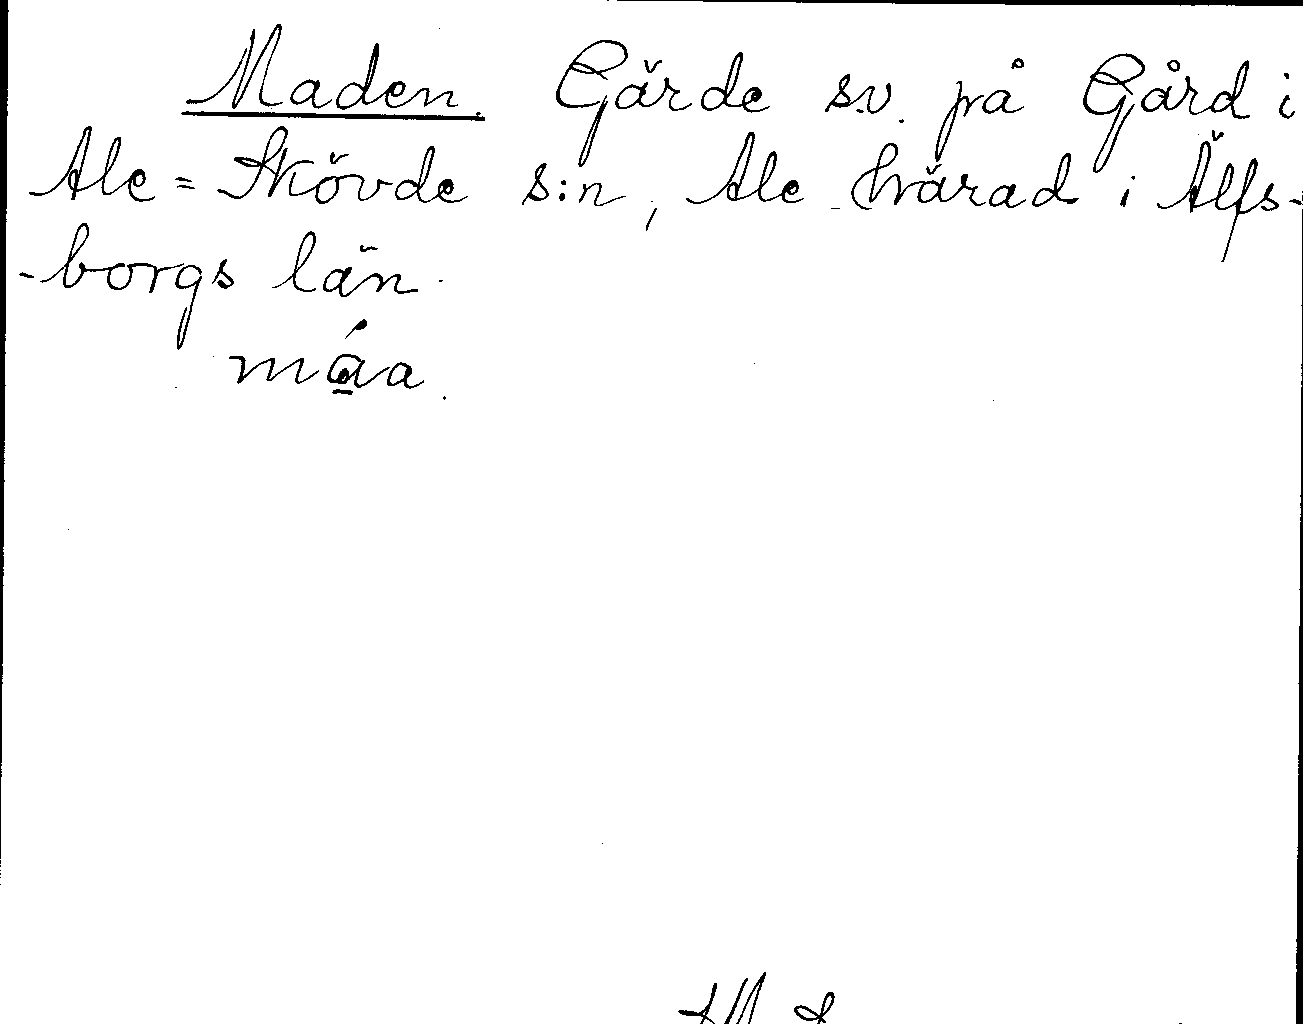 Maden. Gärde s.v. på Gård i
Ale=Skövde s:n, Ale härad i Älfs-
-borgs län.
máa.